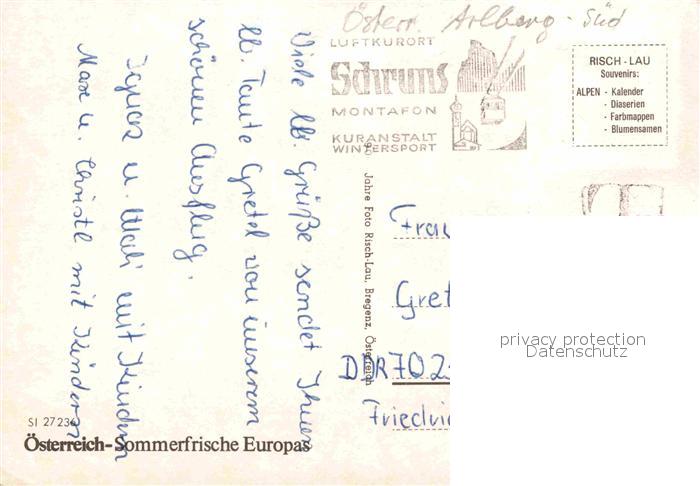 Österr. Arlberg - Süd
LUFTKURORT
Schruns
MONTAFON
KURANSTALT
WINTERSPORT
RISCH-LAU
Souvenirs:
ALPEN - Kalender
- Diaserien
- Farbmappen
- Blumensamen
Viele lb. Grüße sendet Ihnen
lb. Tante Gretel von unserem
schönen Ausflug.
Ignaz u. Mali mit Kindern
Max u. Christl mit Kindern
Jahre Foto Risch-Lau, Bregenz, Österreich
Frau
Gret
DDR 702
Friedri
privacy protection
Datenschutz
SI 27236
Österreich-Sommerfrische Europas